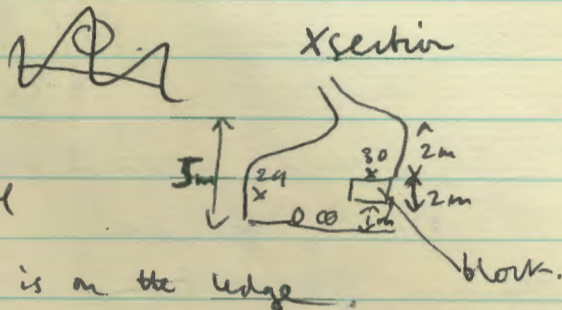 Xsection
5m
29
30
2m
2m
1m
block.
is on the ledge.